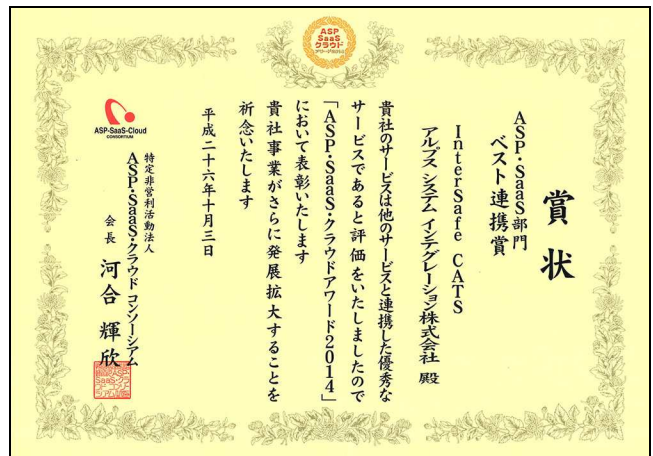 ASP
SaaS
クラウド
賞状
ASP・SaaS部門
ベスト連携賞
InterSafe CATS
アルプス システム インテグレーション株式会社 殿
貴社のサービスは他のサービスと連携した優秀な
サービスであると評価をいたしましたので
「ASP・SaaS・クラウドアワード2014」
において表彰いたします
貴社事業がさらに発展拡大することを
祈念いたします
平成二十六年十月三日
ASP-SaaS-Cloud
CONSORTIUM
特定非営利活動法人
ASP・SaaS・クラウド コンソーシアム
会長 河合 輝欣